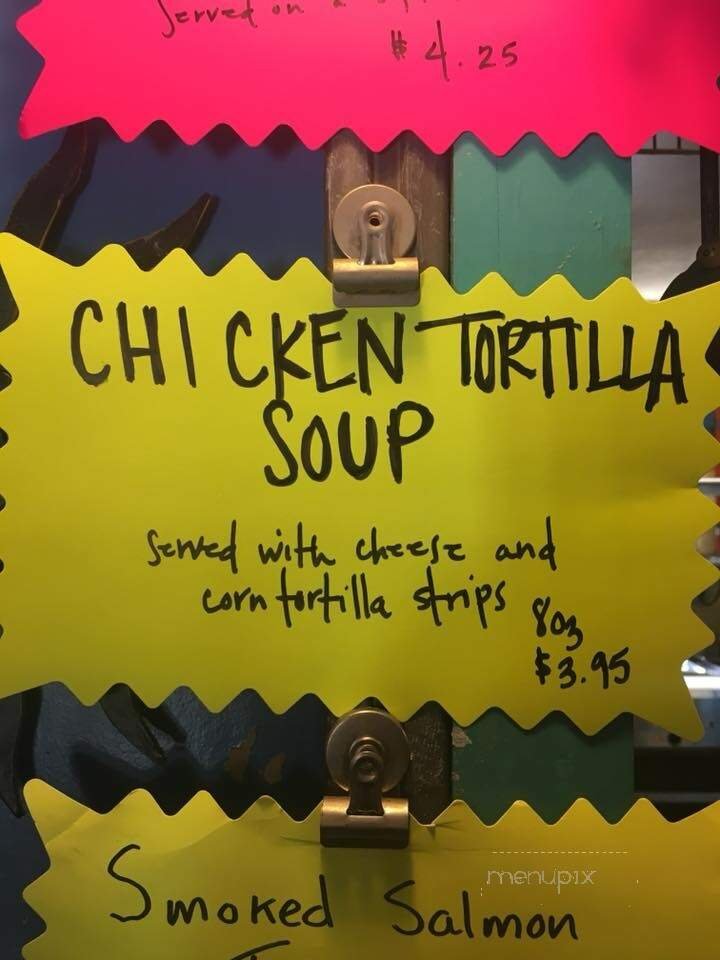 Served on a
$4.25
CHICKEN TORTILLA
SOUP
Served with cheese and
corn tortilla strips
8oz
$3.95
Smoked Salmon
menupix